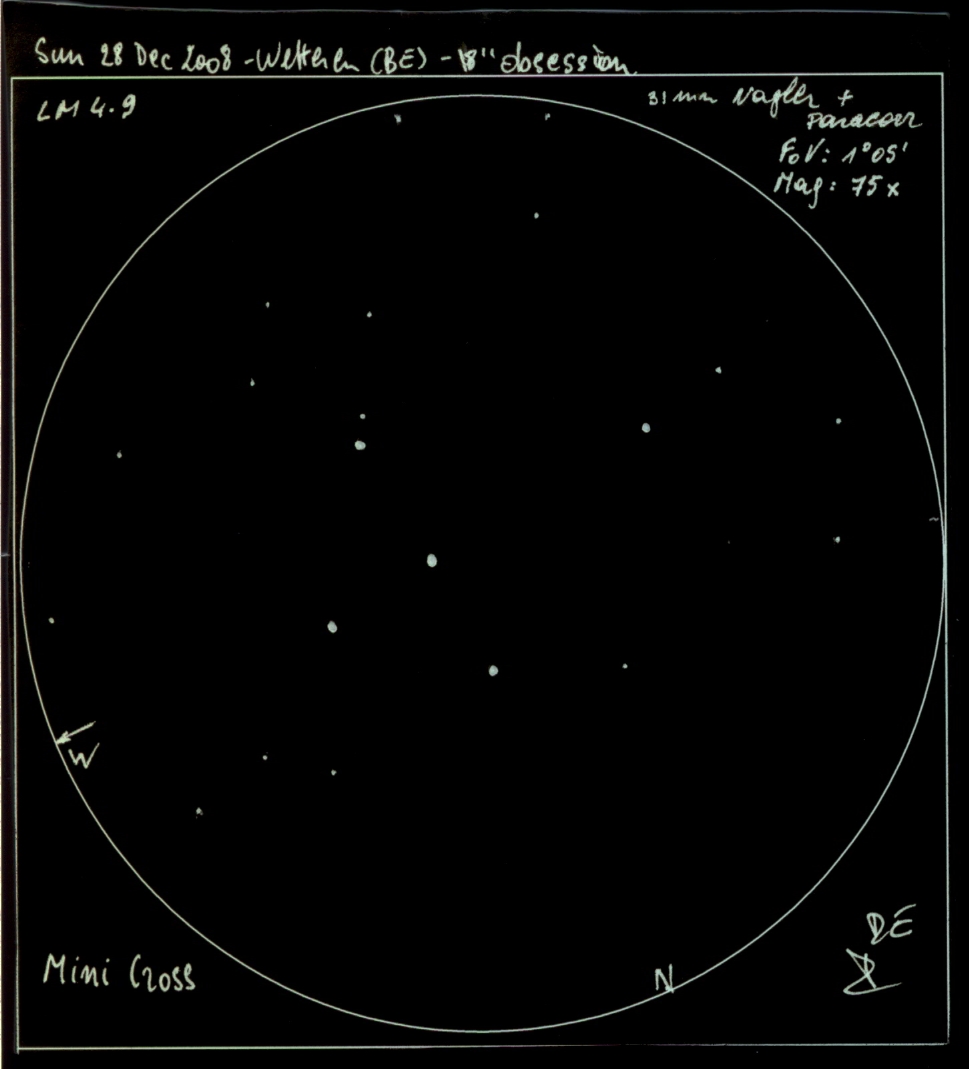 Sun 28 Dec 2008 - Wetteren (BE) - 18" obsession
LM 4.9
31 mm Nagler +
Paracorr
FoV: 1°05'
Mag: 75x
W
N
Mini Cross